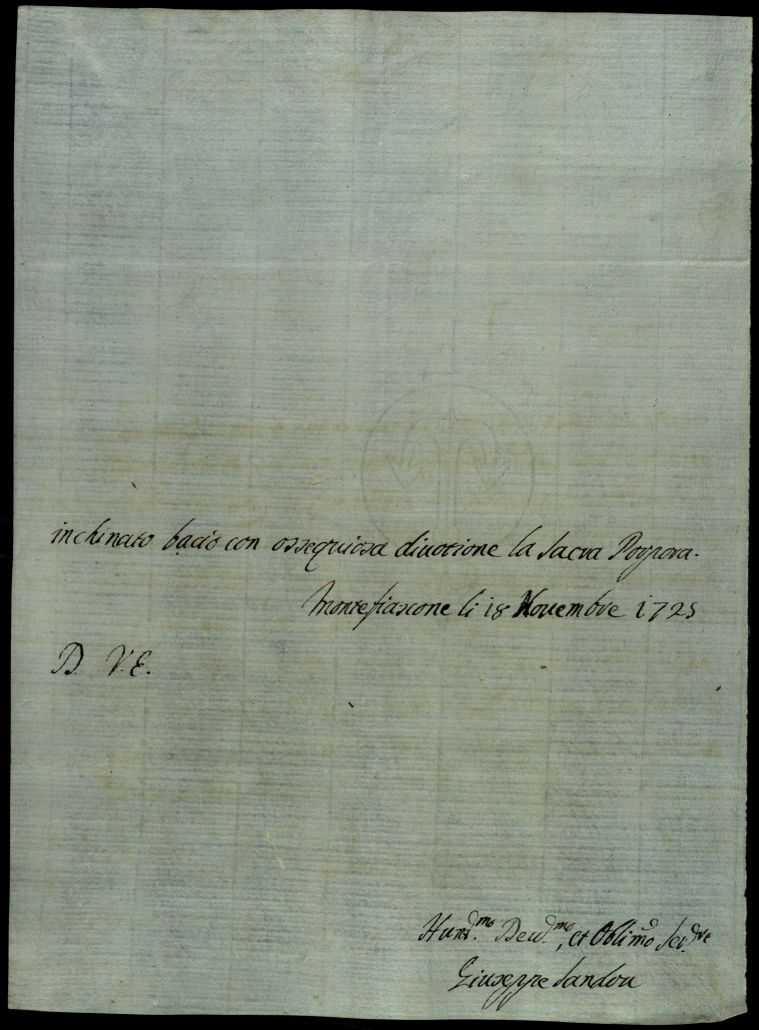 inchinato bacio con ossequiosa diuotione la Sacra Porpora.
Montefiascone li 18 Novembre 1725
D. V. E.
Hum.mo Deu.mo, et Oblimo Ser.re
Giuseppe Sandou